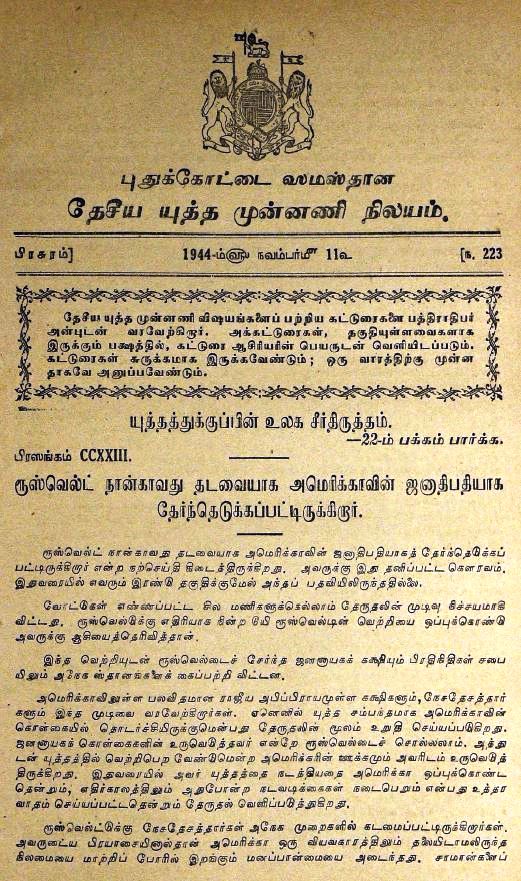 புதுக்கோட்டை ஸமஸ்தான
தேசீய யுத்த முன்னணி நிலயம்.
பிரசுரம்] 1944-ம்௵ நவம்பர்௴ 11௳ [ந. 223
தேசீய யுத்த முன்னணி விஷயங்களைப் பற்றிய கட்டுரைகளை பத்திராதிபர்
அன்புடன் வரவேற்கிறார். அக்கட்டுரைகள், தகுதியுள்ளவைகளாக
இருக்கும் பக்ஷத்தில், கட்டுரை ஆசிரியரின் பெயருடன் வெளியிடப்படும்.
கட்டுரைகள் சுருக்கமாக இருக்கவேண்டும்; ஒரு வாரத்திற்கு முன்ன
தாகவே அனுப்பவேண்டும்.
யுத்தத்துக்குப்பின் உலக சீர்திருத்தம்.
—22-ம் பக்கம் பார்க்க.
பிரஸங்கம் CCXXIII.
ரூஸ்வெல்ட் நான்காவது தடவையாக அமெரிக்காவின் ஜனாதிபதியாக
தேர்ந்தெடுக்கப்பட்டிருக்கிறார்.
ரூஸ்வெல்ட் நான்காவது தடவையாக அமெரிக்காவின் ஜனாதிபதியாகத் தேர்ந்தெடுக்கப்
பட்டிருக்கிறார் என்ற நற்செய்தி கிடைத்திருக்கிறது. அவருக்கு இது தனிப்பட்ட கௌரவம்.
இதுவரையில் எவரும் இரண்டு தகுதிக்குமேல் அந்தப் பதவியிலிருந்ததில்லை.
வோட்டுகள் எண்ணப்பட்ட சில மணிகளுக்கெல்லாம் தேருதலின் முடிவு நிச்சயமாகி
விட்டது. ரூஸ்வெல்டுக்கு எதிரியாக நின்ற டூயி ரூஸ்வெல்டின் வெற்றியை ஒப்புக்கொண்டு
அவருக்கு ஆசியைத்தெரிவித்தான்.
இந்த வெற்றியுடன் ரூஸ்வெல்டைச் சேர்ந்த ஜனநாயகக் கக்ஷியும் பிரதிநிதிகள் சபை
யிலும் அநேக ஸ்தானங்களைக் கைப்பற்றி விட்டன.
அமெரிக்காவிலுள்ள பலவிதமான ராஜீய அபிப்பிராயமுள்ள கக்ஷிகளும், நேசதேசத்தார்
களும் இந்த முடிவை வரவேற்கிறார்கள். ஏனெனில் யுத்த சம்பந்தமாக அமெரிக்காவின்
கொள்கையில் தொடர்ச்சியிருக்குமென்பது தேருதலின் மூலம் உறுதி செய்யப்படுகிறது.
ஜனநாயகக் கொள்கைகளின் உருவெடுத்தவர் என்றே ரூஸ்வெல்டைச் சொல்லலாம். அத்து
டன் யுத்தத்தில் வெற்றிபெற வேண்டுமென்ற அமெரிக்கரின் ஊக்கமும் அவரிடம் உருவெடுத்
திருக்கிறது. இதுவரையில் அவர் யுத்தத்தை நடத்தியதை அமெரிக்கா ஒப்புக்கொண்ட
தென்றும், எதிர்காலத்திலும் அதுபோன்ற நடவடிக்கைகள் நடைபெறும் என்பது உத்தர
வாதம் செய்யப்பட்டதென்றும் தேருதல் வெளிப்படுத்துகிறது.
ரூஸ்வெல்டுக்கு நேசதேசத்தார்கள் அநேக முறைகளில் கடமைப்பட்டிருக்கிறார்கள்.
அவருடைய பிரயாசையினால்தான் அமெரிக்கா ஒரு வியவகாரத்திலும் தலையிடாமலிருந்த
நிலைமையை மாற்றிப் போரில் இறங்கும் மனப்பான்மையை அடைந்தது. சாமான்களைப்